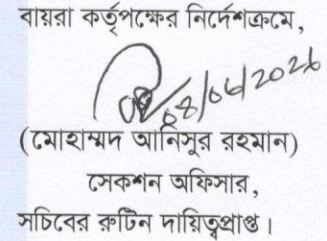 বায়রা কর্তৃপক্ষের নির্দেশক্রমে,
08/06/2026
(মোহাম্মদ আনিসুর রহমান)
সেকশন অফিসার,
সচিবের রুটিন দায়িত্বপ্রাপ্ত।